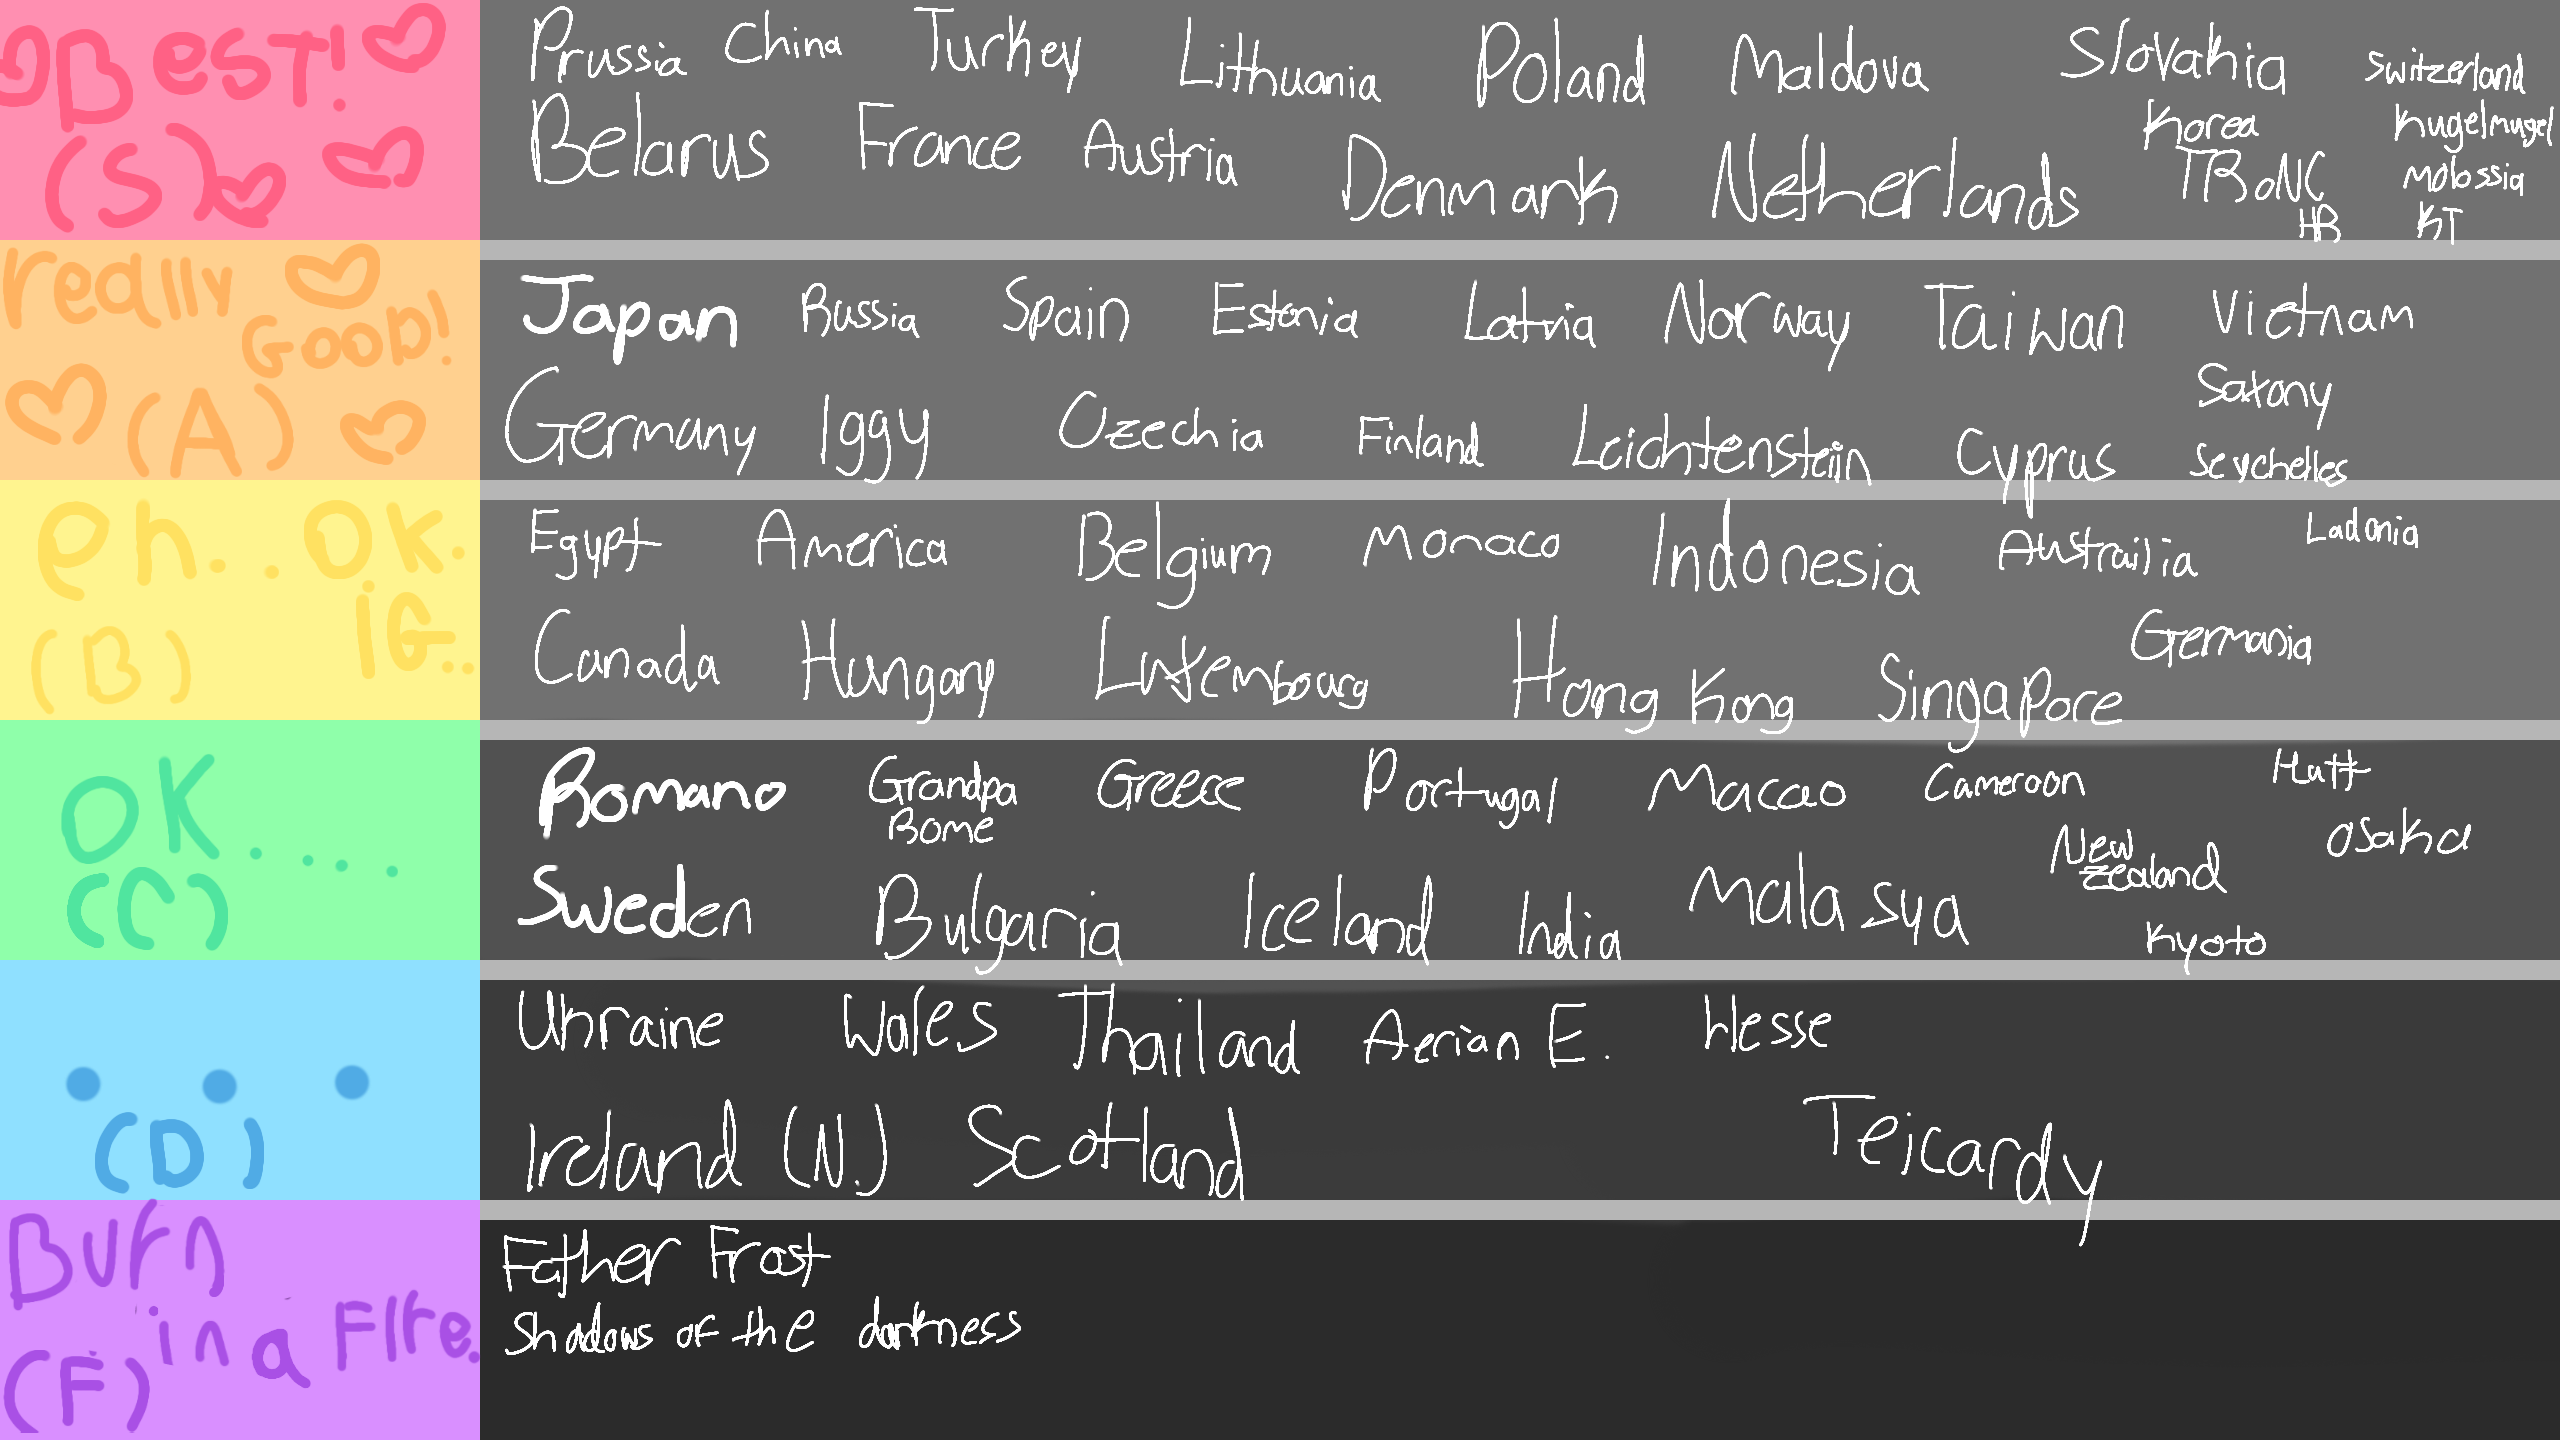 Best!
(S)
Prussia China Turkey Lithuania Poland Maldova Slovakia Switzerland
Belarus France Austria Denmark Netherlands Korea Kugelmugel
TRoNC Molossia
HB KT
really
GOOD!
(A)
Japan Russia Spain Estonia Latvia Norway Taiwan Vietnam
Saxony
Germany Iggy Czechia Finland Leichtenstein Cyprus Seychelles
eh.. OK.
IG..
(B)
Egypt America Belgium Monaco Indonesia Austrailia Ladonia
Canada Hungary Luxembourg Hong Kong Singapore Germania
OK....
(C)
Romano Grandpa Rome Greece Portugal Macao Cameroon Hutt
New Zealand Osaka
Sweden Bulgaria Iceland India Malasya Kyoto
...
(D)
Ukraine Wales Thailand Aerian E. Hesse
Ireland (N.) Scotland Teicardy
Burn
in a Fire.
(F)
Father Frost
Shadows of the darkness